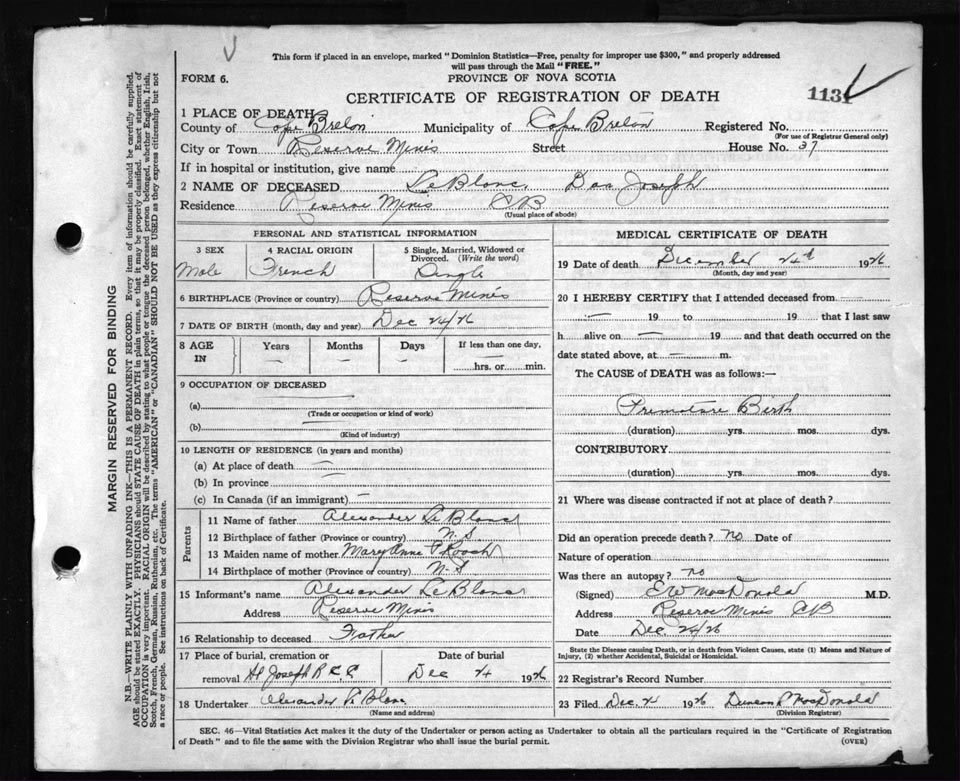 This form if placed in an envelope, marked "Dominion Statistics—Free, penalty for improper use $300," and properly addressed
will pass through the Mail "FREE."
FORM 6.
PROVINCE OF NOVA SCOTIA
CERTIFICATE OF REGISTRATION OF DEATH
1131
1 PLACE OF DEATH
County of Cape Breton Municipality of Cape Breton Registered No.
(For use of Registrar General only)
City or Town Reserve Mines Street House No. 37
If in hospital or institution, give name
2 NAME OF DECEASED LeBlanc Joseph
Residence Reserve Mines CB
(Usual place of abode)
PERSONAL AND STATISTICAL INFORMATION
3 SEX
Male
4 RACIAL ORIGIN
French
5 Single, Married, Widowed or
Divorced. (Write the word)
Single
6 BIRTHPLACE (Province or country) Reserve Mines
7 DATE OF BIRTH (month, day and year) Dec 24/26
8 AGE IN Years Months Days If less than one day,
hrs. or min.
9 OCCUPATION OF DECEASED
(a)
(Trade or occupation or kind of work)
(b)
(Kind of industry)
10 LENGTH OF RESIDENCE (in years and months)
(a) At place of death —
(b) In province —
(c) In Canada (if an immigrant) —
Parents
11 Name of father Alexander LeBlanc
12 Birthplace of father (Province or country) N.S
13 Maiden name of mother Mary Anne Roach
14 Birthplace of mother (Province or country) N.S
15 Informant's name Alexander LeBlanc
Address Reserve Mines
16 Relationship to deceased Father
17 Place of burial, cremation or
removal St Joseph R C C
Date of burial
Dec 24 1926
18 Undertaker Alexander LeBlanc
(Name and address)
MEDICAL CERTIFICATE OF DEATH
19 Date of death December 24th 1926
(Month, day and year)
20 I HEREBY CERTIFY that I attended deceased from
— 19 to — 19 that I last saw
h alive on — 19 and that death occurred on the
date stated above, at — m.
The CAUSE of DEATH was as follows:—
Premature Birth
(duration) yrs. mos. dys.
CONTRIBUTORY
(duration) yrs. mos. dys.
21 Where was disease contracted if not at place of death?
Did an operation precede death? no Date of
Nature of operation
Was there an autopsy? no
(Signed) E W MacDonald M.D.
Address Reserve Mines CB
Date Dec 24/26
State the Disease causing Death, or in death from Violent Causes, state (1) Means and Nature of
Injury, (2) whether Accidental, Suicidal or Homicidal.
22 Registrar's Record Number
23 Filed Dec 24 1926 Duncan P MacDonald
(Division Registrar)
SEC. 46—Vital Statistics Act makes it the duty of the Undertaker or person acting as Undertaker to obtain all the particulars required in the "Certificate of Registration
of Death" and to file the same with the Division Registrar who shall issue the burial permit.
(OVER)
MARGIN RESERVED FOR BINDING
N.B.—WRITE PLAINLY WITH UNFADING INK—THIS IS A PERMANENT RECORD. Every item of information should be carefully supplied.
AGE should be stated EXACTLY. PHYSICIANS should STATE CAUSE OF DEATH in plain terms, so that it may be properly classified. Exact statement of
OCCUPATION is very important. RACIAL ORIGIN will be described by stating to what people or tongue the deceased person belonged, whether English, Irish,
Scotch, French, German, Russian, Ruthenian, etc. The terms "AMERICAN" or "CANADIAN" SHOULD NOT BE USED as they express citizenship but not
a race or people. See instructions on back of Certificate.